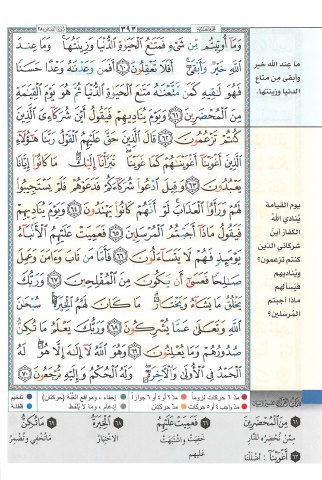 ٣٩٣
وَمَا أُوتِيتُم مِّن شَىْءٍ فَمَتَٰعُ ٱلْحَيَوٰةِ ٱلدُّنْيَا وَزِينَتُهَا ۚ وَمَا عِندَ
ٱللَّهِ خَيْرٌ وَأَبْقَىٰٓ ۚ أَفَلَا تَعْقِلُونَ ٦٠ أَفَمَن وَعَدْنَٰهُ وَعْدًا حَسَنًا
فَهُوَ لَٰقِيهِ كَمَن مَّتَّعْنَٰهُ مَتَٰعَ ٱلْحَيَوٰةِ ٱلدُّنْيَا ثُمَّ هُوَ يَوْمَ ٱلْقِيَٰمَةِ
مِنَ ٱلْمُحْضَرِينَ ٦١ وَيَوْمَ يُنَادِيهِمْ فَيَقُولُ أَيْنَ شُرَكَآءِىَ ٱلَّذِينَ
كُنتُمْ تَزْعُمُونَ ٦٢ قَالَ ٱلَّذِينَ حَقَّ عَلَيْهِمُ ٱلْقَوْلُ رَبَّنَا هَٰٓؤُلَآءِ
ٱلَّذِينَ أَغْوَيْنَآ أَغْوَيْنَٰهُمْ كَمَا غَوَيْنَا ۖ تَبَرَّأْنَآ إِلَيْكَ ۖ مَا كَانُوٓا۟ إِيَّانَا
يَعْبُدُونَ ٦٣ وَقِيلَ ٱدْعُوا۟ شُرَكَآءَكُمْ فَدَعَوْهُمْ فَلَمْ يَسْتَجِيبُوا۟
لَهُمْ وَرَأَوُا۟ ٱلْعَذَابَ ۚ لَوْ أَنَّهُمْ كَانُوا۟ يَهْتَدُونَ ٦٤ وَيَوْمَ يُنَادِيهِمْ
فَيَقُولُ مَاذَآ أَجَبْتُمُ ٱلْمُرْسَلِينَ ٦٥ فَعَمِيَتْ عَلَيْهِمُ ٱلْأَنۢبَآءُ
يَوْمَئِذٍ فَهُمْ لَا يَتَسَآءَلُونَ ٦٦ فَأَمَّا مَن تَابَ وَءَامَنَ وَعَمِلَ
صَٰلِحًا فَعَسَىٰٓ أَن يَكُونَ مِنَ ٱلْمُفْلِحِينَ ٦٧ وَرَبُّكَ
يَخْلُقُ مَا يَشَآءُ وَيَخْتَارُ ۗ مَا كَانَ لَهُمُ ٱلْخِيَرَةُ ۚ سُبْحَٰنَ
ٱللَّهِ وَتَعَٰلَىٰ عَمَّا يُشْرِكُونَ ٦٨ وَرَبُّكَ يَعْلَمُ مَا تُكِنُّ
صُدُورُهُمْ وَمَا يُعْلِنُونَ ٦٩ وَهُوَ ٱللَّهُ لَآ إِلَٰهَ إِلَّا هُوَ ۖ لَهُ
ٱلْحَمْدُ فِى ٱلْأُولَىٰ وَٱلْءَاخِرَةِ ۖ وَلَهُ ٱلْحُكْمُ وَإِلَيْهِ تُرْجَعُونَ ٧٠
ما عند الله خير
وأبقى من متاع
الدنيا وزينتها.
يوم القيامة
يُنادي الله
الكفار أين
شركائي الذين
كنتم تزعمون؟
ويُناديهم
فيسألهم
ماذا أجبتم
المُرسَلين؟
مد ٦ حركات لزوماً مد ٢ أو ٤ أو ٦ جوازاً إخفاء ، ومواقع الغُنَّة (حركتان) تفخيم
مد واجب ٤ أو ٥ حركات مد حركتان إدغام ، وما لا يُلفَظ قلقلة
٦١ مِنَ الْمُحْضَرِينَ ٦٦ فَعَمِيَتْ عَلَيْهِمُ ٦٨ الْخِيَرَةُ ٦٩ مَا تُكِنُّ
مِمَّن نُحْضِرُهُ لِلنَّارِ خَفِيَتْ وَاشْتَبَهَتْ الاخْتِيَارُ مَا تُخْفِي وَتُضْمِرُ
٦٣ أَغْوَيْنَا : أَضْلَلْنَا عليهم